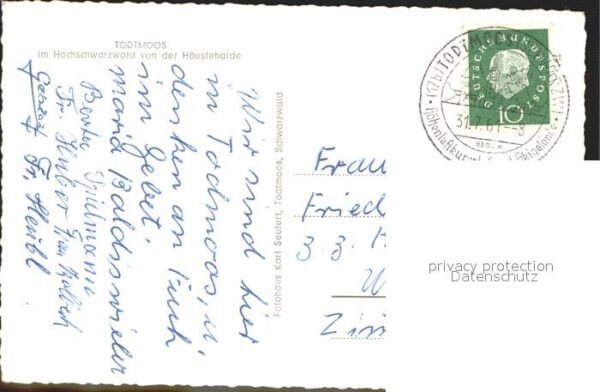 TODTMOOS
im Hochschwarzwald von der Häuslehalde
Wir sind hier
in Todmoos, u.
denken an Euch
im Gebet.
Maria Baldisweiler
Berta Spielmann
Fr. Huber Frau
Fr.
Fotohaus Karl Seufert, Todtmoos, Schwarzwald
DEUTSCHE BUNDESPOST
10
(17b) TODTMO
31.7.61-8
Höhenluftkurort
Frau
Fried
z. Z.
W
Zi
privacy protection
Datenschutz